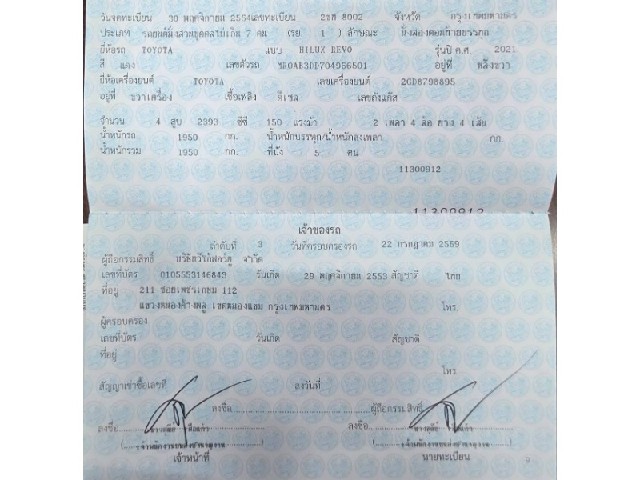 วันจดทะเบียน 30 พฤศจิกายน 2554 เลขทะเบียน 2ฒฬ 8002 จังหวัด กรุงเทพมหานคร
ประเภท รถยนต์นั่งส่วนบุคคลไม่เกิน 7 คน (รย. 1 ) ลักษณะ
ยี่ห้อรถ TOYOTA แบบ HILUX REVO รุ่นปี ค.ศ. 2021
สี แดง เลขตัวรถ อยู่ที่
ยี่ห้อเครื่องยนต์ TOYOTA เลขเครื่องยนต์ 2GD8798895
อยู่ที่ ขวาเครื่อง เชื้อเพลิง ดีเซล เลขถังแก๊ส
จำนวน 4 สูบ 2393 ซีซี 150 แรงม้า 2 เพลา 4 ล้อ ยาง 4 เส้น
น้ำหนักรถ 1950 กก. น้ำหนักบรรทุก/น้ำหนักลงเพลา กก
น้ำหนักรวม 1950 กก. ที่นั่ง 5 คน
11300912
11300912
เจ้าของรถ
ลำดับที่ 3 วันที่ครอบครองรถ 22 กรกฎาคม 2559
ผู้ถือกรรมสิทธิ์ จำกัด
เลขที่บัตร 0105553146843 วันเกิด 29 พฤศจิกายน 2553 สัญชาติ ไทย
ที่อยู่ 211 ซอยเพชรเกษม 112
แขวงหนองค้างพลู เขตหนองแขม กรุงเทพมหานคร โทร.
ผู้ครอบครอง
เลขที่บัตร วันเกิด สัญชาติ
ที่อยู่
โทร.
สัญญาเช่าซื้อเลขที่ ลงวันที่
ลงชื่อ ผู้ถือกรรมสิทธิ์
ลงชื่อ ลงชื่อ
เจ้าหน้าที่ นายทะเบียน